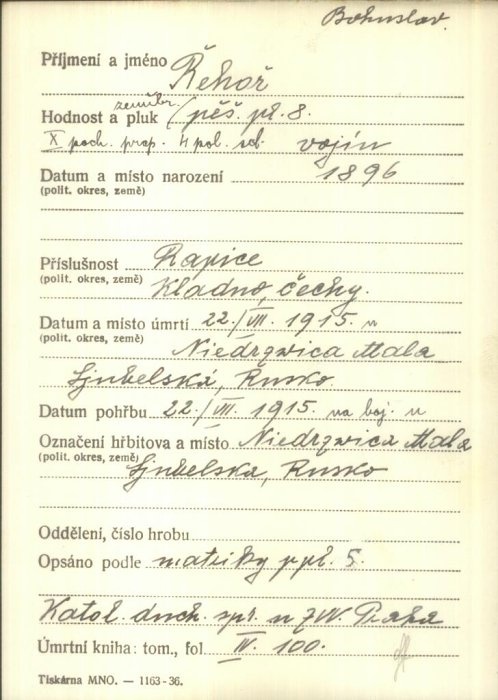 Bohuslav.
Příjmení a jméno Řehoř
Hodnost a pluk zeměbr. pěš. pl. 8.
X poch. prap. 4 pol. set. vojín
Datum a místo narození 1896
(polit. okres, země)
Příslušnost Rapice
(polit. okres, země) Kladno, čechy.
Datum a místo úmrtí 22./VII. 1915. u
(polit. okres, země) Niedrzwica Mala
Ljubelská, Rusko
Datum pohřbu 22./VII. 1915. na boj. u
Označení hřbitova a místo Niedrzwica Mala
(polit. okres, země) Ljubelska, Rusko
Oddělení, číslo hrobu
Opsáno podle matriky ppl. 5.
Katol. duch. spr. u ZVV. Praha
Úmrtní kniha: tom., fol IV. 100.
Tiskárna MNO. — 1163-36.